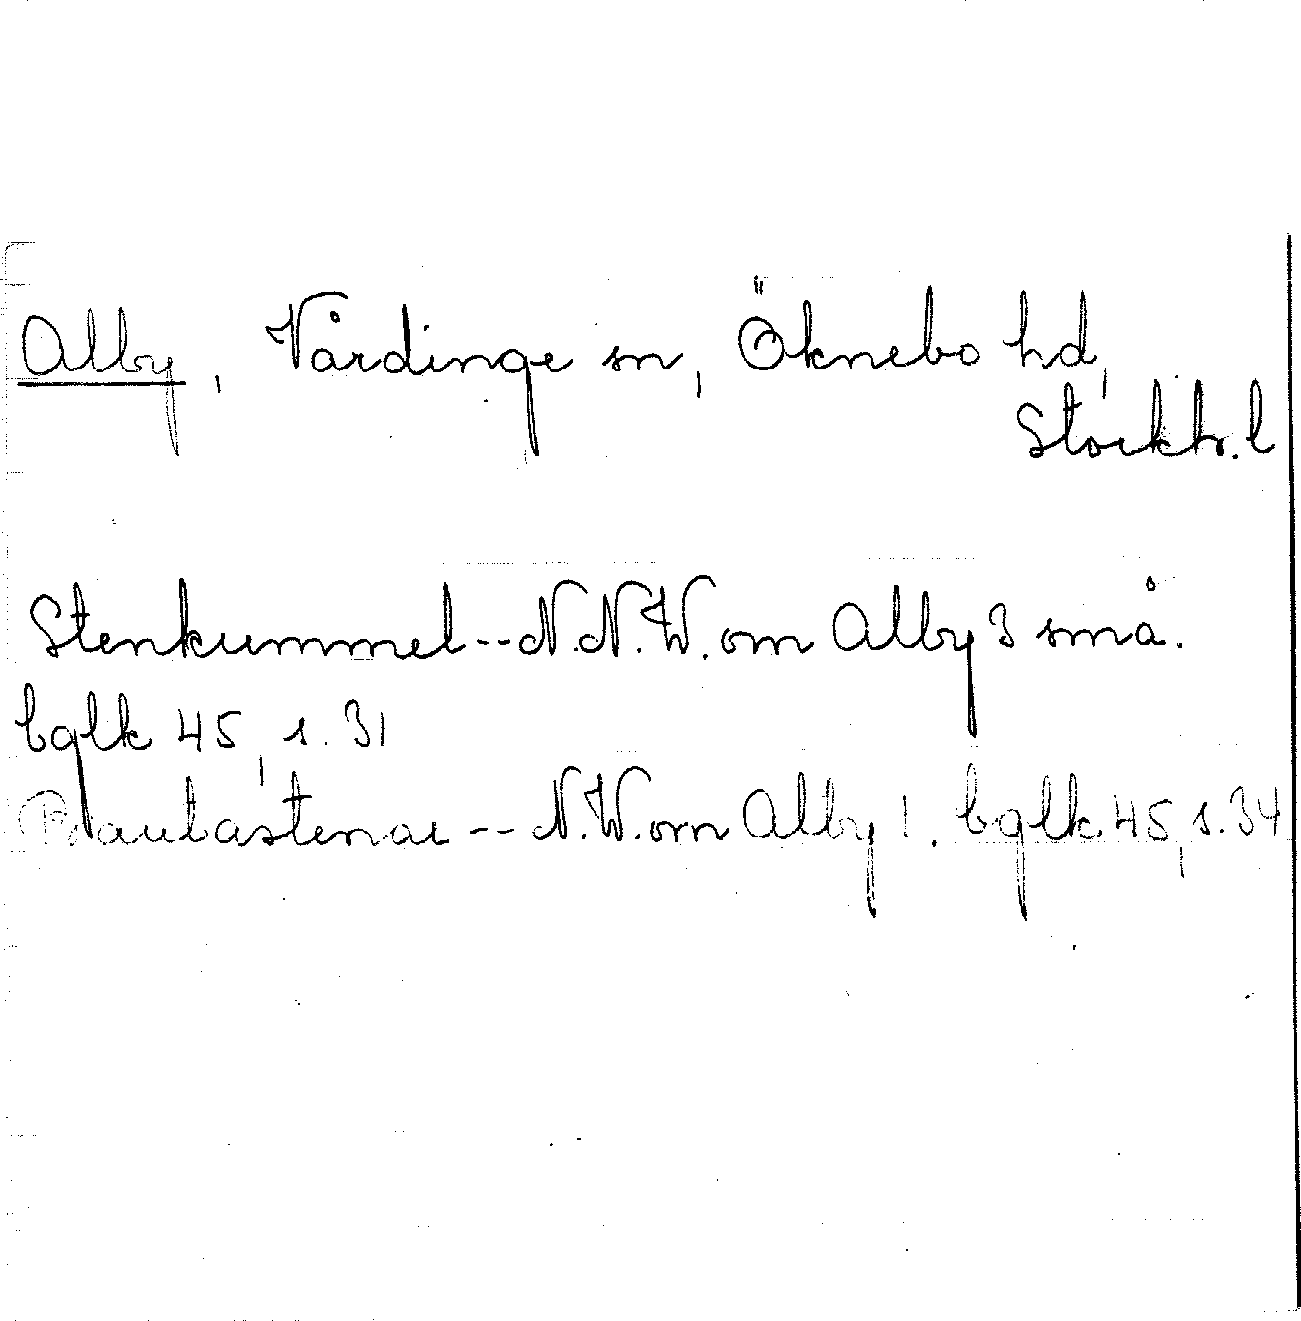 Alby, Vårdinge sn, Öknebo hd,
Stockh. l
Stenkummel--N.N.W. om Alby 3 små.
bglk 45, s. 31
Bautastenar--N.W. om Alby 1. bglk. 45, s. 34